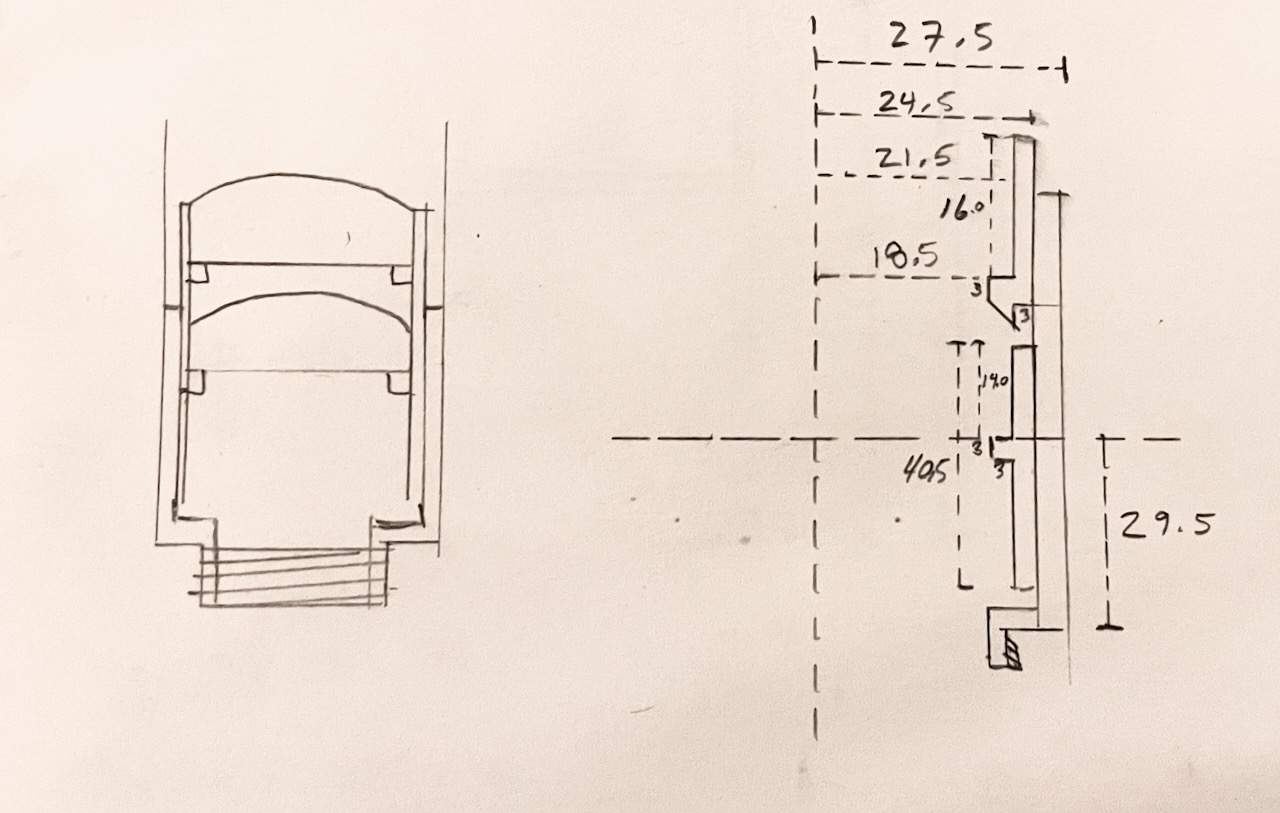 27.5
24.5
21.5
16.0
18.5
3
3
14.0
3
40.5
3
29.5